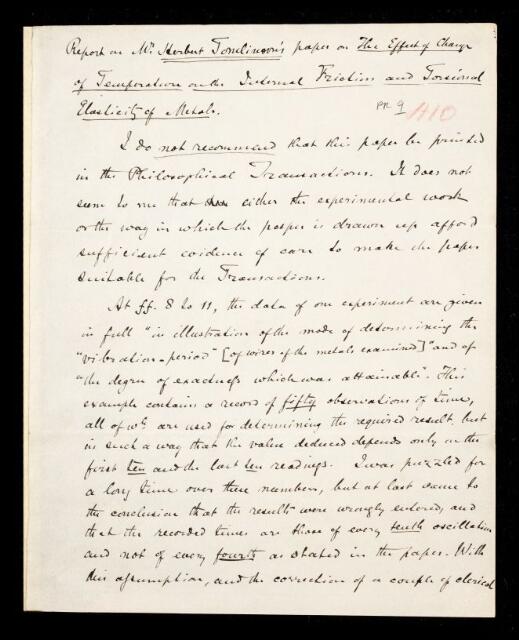 Report on Mr. Herbert Tomlinson's paper on The Effect of Change
of Temperature on the Internal Friction and Torsional
Elasticity of Metals.
A10
I do not recommend that this paper be printed
in the Philosophical Transactions. It does not
seem to me that either the experimental work
or the way in which the paper is drawn up afford
sufficient evidence of care to make the paper
suitable for the Transactions.
At ff. 8 to 11, the data of one experiment are given
in full "in illustration of the mode of determining the
"vibration-period" [of wires of the metals examined] "and of
"the degree of exactness which was attainable". This
example contains a record of fifty observations of time,
all of wh. are used for determining the required result, but
in such a way that the value deduced depends only on the
first ten and the last ten readings. I was puzzled for
a long time over these numbers, but at last came to
the conclusion that the results were wrongly entered, and
that the recorded times are those of every tenth oscillation
and not of every fourth as stated in the paper. With
this assumption, and the correction of a couple of clerical